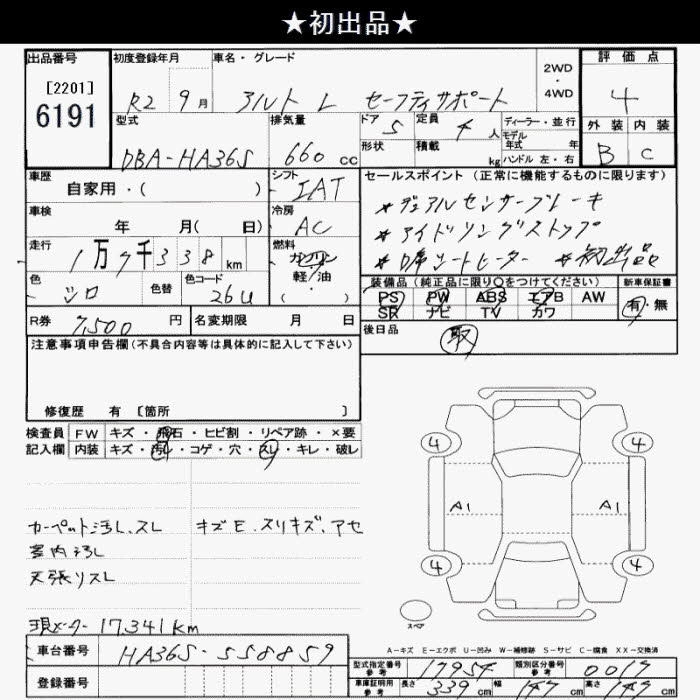 ★初出品★
出品番号 初度登録年月 車名・グレード 2WD・4WD 評価点
[2201]
6191
R2 9月 アルト L セーフティサポート 4
型式 排気量 ドア 5 定員 4人 ディーラー・並行 外装 内装
形状 積載 kg モデル年式 年
ハンドル 左・右
DBA-HA36S 660cc B C
車歴 自家用・( ) シフト IAT セールスポイント(正常に機能するものに限ります)
車検 年 月( 日) 冷房 AC
*デュアルセンサーブレーキ
*アイドリングストップ
走行 1万7千338km 燃料 ガソリン 軽・油 ( )
*D席シートヒーター *初出品
色 シロ 色替 色コード 26U
装備品(純正品に限り○をつけてください) 新車保証書
PS PW ABS エアB AW 有・無
SR ナビ TV カワ
R券 7,500円 名変期限 月 日 後日品 取
注意事項申告欄(不具合内容等は具体的に記入して下さい)
修復歴 有 [箇所 ]
検査員 FW キズ・飛石・ヒビ割・リペア跡・×要
記入欄 内装 キズ・汚レ・コゲ・穴・スレ・キレ・破レ
4 4
A1 A1
4 4
カーペット汚レ、スレ キズE.スリキズ、アセ
室内汚レ
天張リスレ
スペア
現メーター 17,341km
A-キズ E-エクボ U-凹み W-補修跡 S-サビ C-腐食 XX-交換済
車台番号 HA36S-558859
型式指定番号 参考 17954 類別区分番号 参考 0017
登録番号
車庫証明用 参考 長さ 339cm 幅 147cm 高さ 147cm